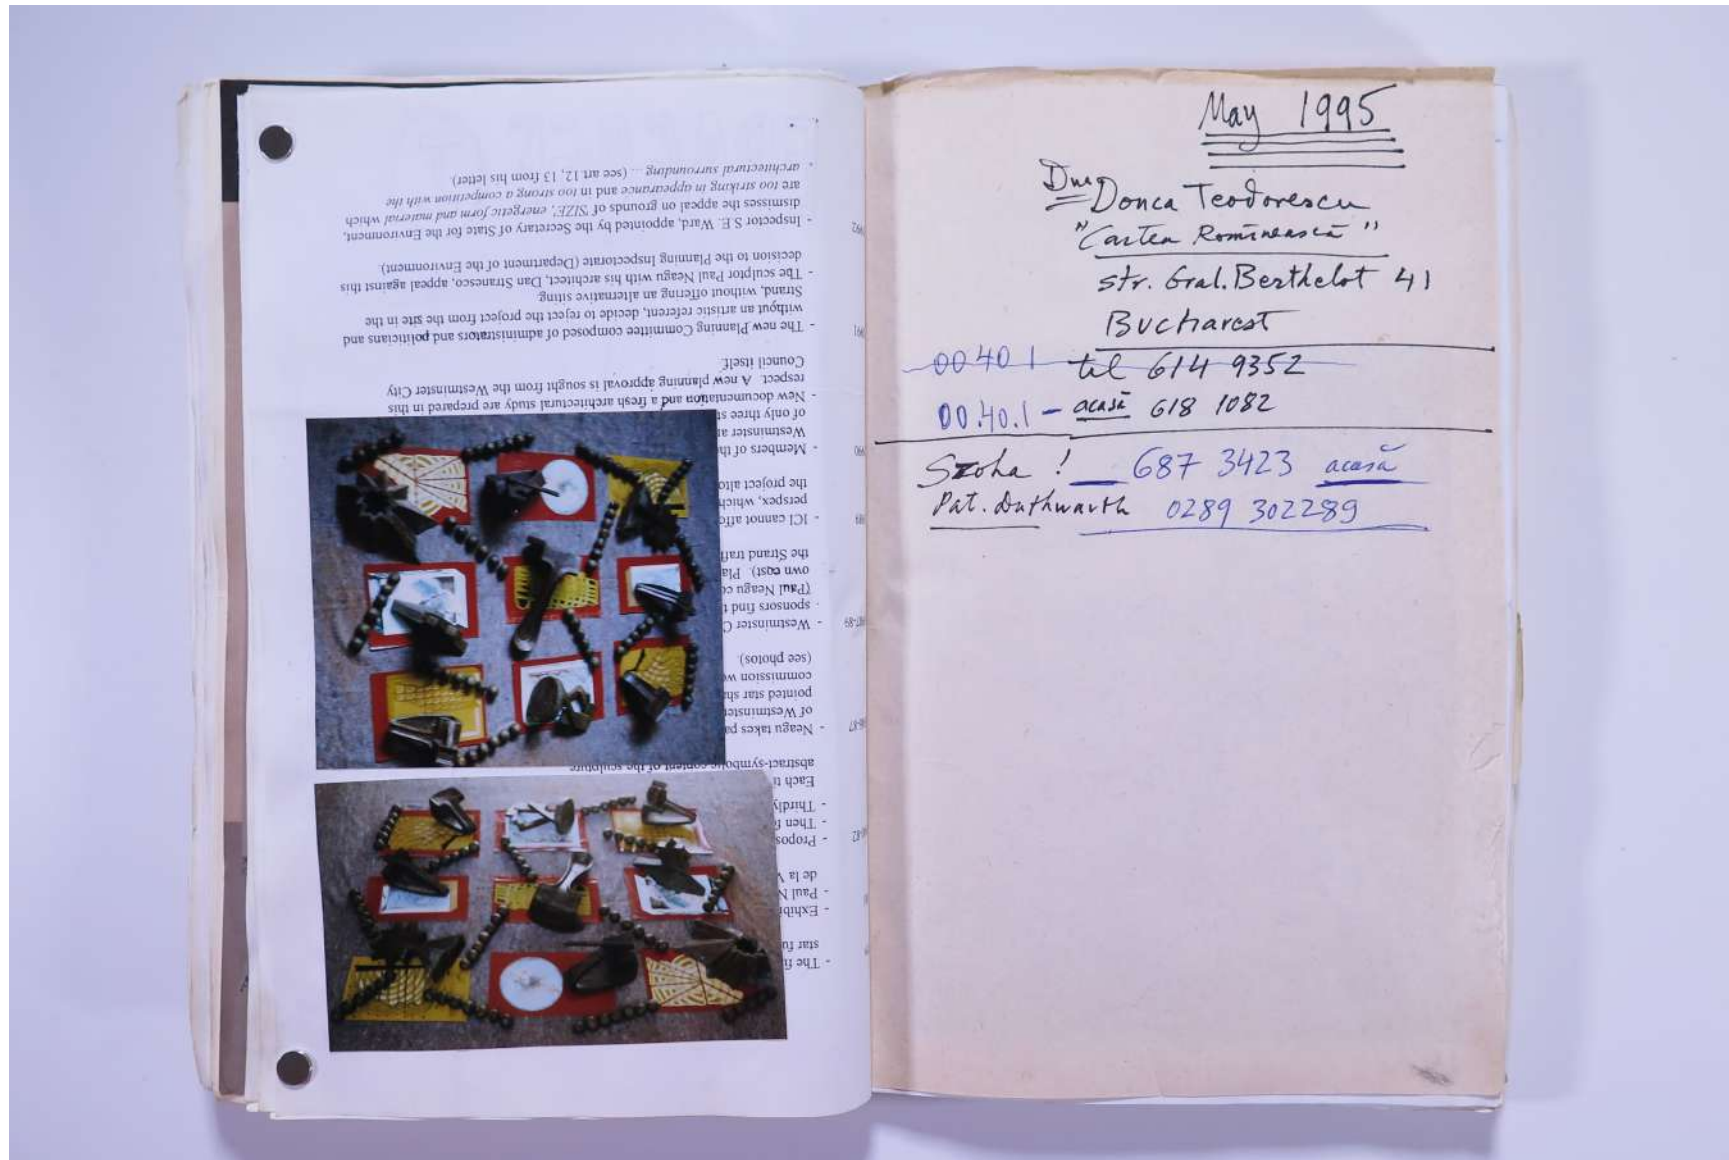 - The fi
star fu
- Exhibi
- Paul N
de la V
- Propos
- Then f
- Thirdly
Each ti
abstract-symbolic content of the sculpture
- Neagu takes pa
of Westminster
pointed star sha
commission w
(see photos)
- Westminster C
sponsors find t
(Paul Neagu c
own cost). Pla
the Strand traff
- ICI cannot affo
perspex, which
the project alto
990 - Members of th
Westminster ar
of only three st
- New documentation and a fresh architectural study are prepared in this
respect. A new planning approval is sought from the Westminster City
Council itself.
991 - The new Planning Committee composed of administrators and politicians and
without an artistic referent, decide to reject the project from the site in the
Strand, without offering an alternative siting
- The sculptor Paul Neagu with his architect, Dan Stranesco, appeal against this
decision to the Planning Inspectorate (Department of the Environment)
992 - Inspector S.E. Ward, appointed by the Secretary of State for the Environment,
dismisses the appeal on grounds of 'SIZE', energetic form and material which
are too striking in appearance and in too strong a competition with the
architectural surrounding ... (see art 12, 13 from his letter)
May 1995
Dna Donca Teodorescu
"Cartea Românească"
str. Gral. Berthelot 41
Bucharest
00 40 1 tel 614 9352
00.40.1 - acasă 618 1082
Szoha ! 687 3423 acasă
Pat. 0289 302289